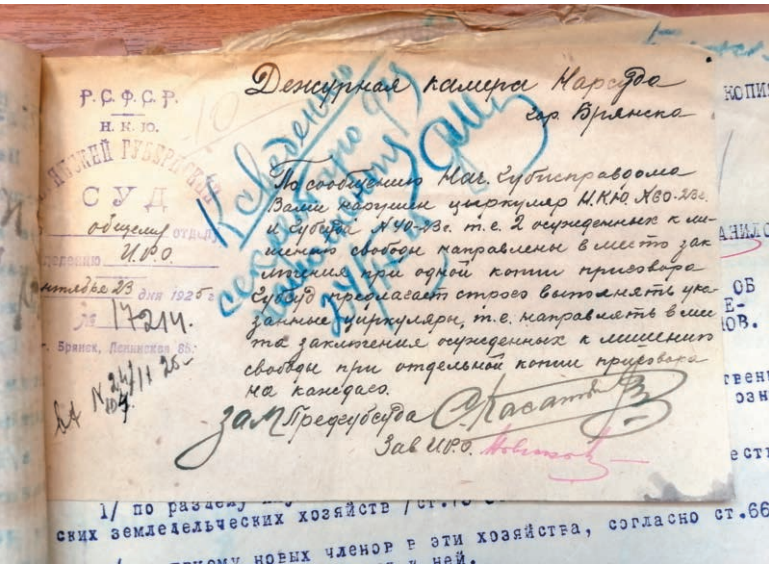 Р.С.Ф.С.Р.
Н.К.Ю.
ГУБЕРНСКИЙ
СУД
общему отделу
И.Р.О.
23 дня 1925 г.
№ 17214.
г. Брянск, Ленинская 85.
Дежурная камера Нарсуда
гор. Брянска
По сообщению Нач. Губисправдома
Вами нарушен циркуляр НКЮ. №60-23г.
и Губсуда №40-23г. т.е. 2 осужденных к ли-
шению свободы направлены в место зак-
лючения при одной копии приговора
Губсуд предлагает строго выполнять ука-
занные циркуляры, т.е. направлять в ме-
та заключения осужденных к лишению
свободы при отдельной копии приговора
на каждого.
Зам Предгубсуда
Зав И.Р.О.
К сведению
КОПИ
ОБ
1/ по разделу
ских земледельческих хозяйств /ст.
новых членов в эти хозяйства, согласно ст.66
и ней.